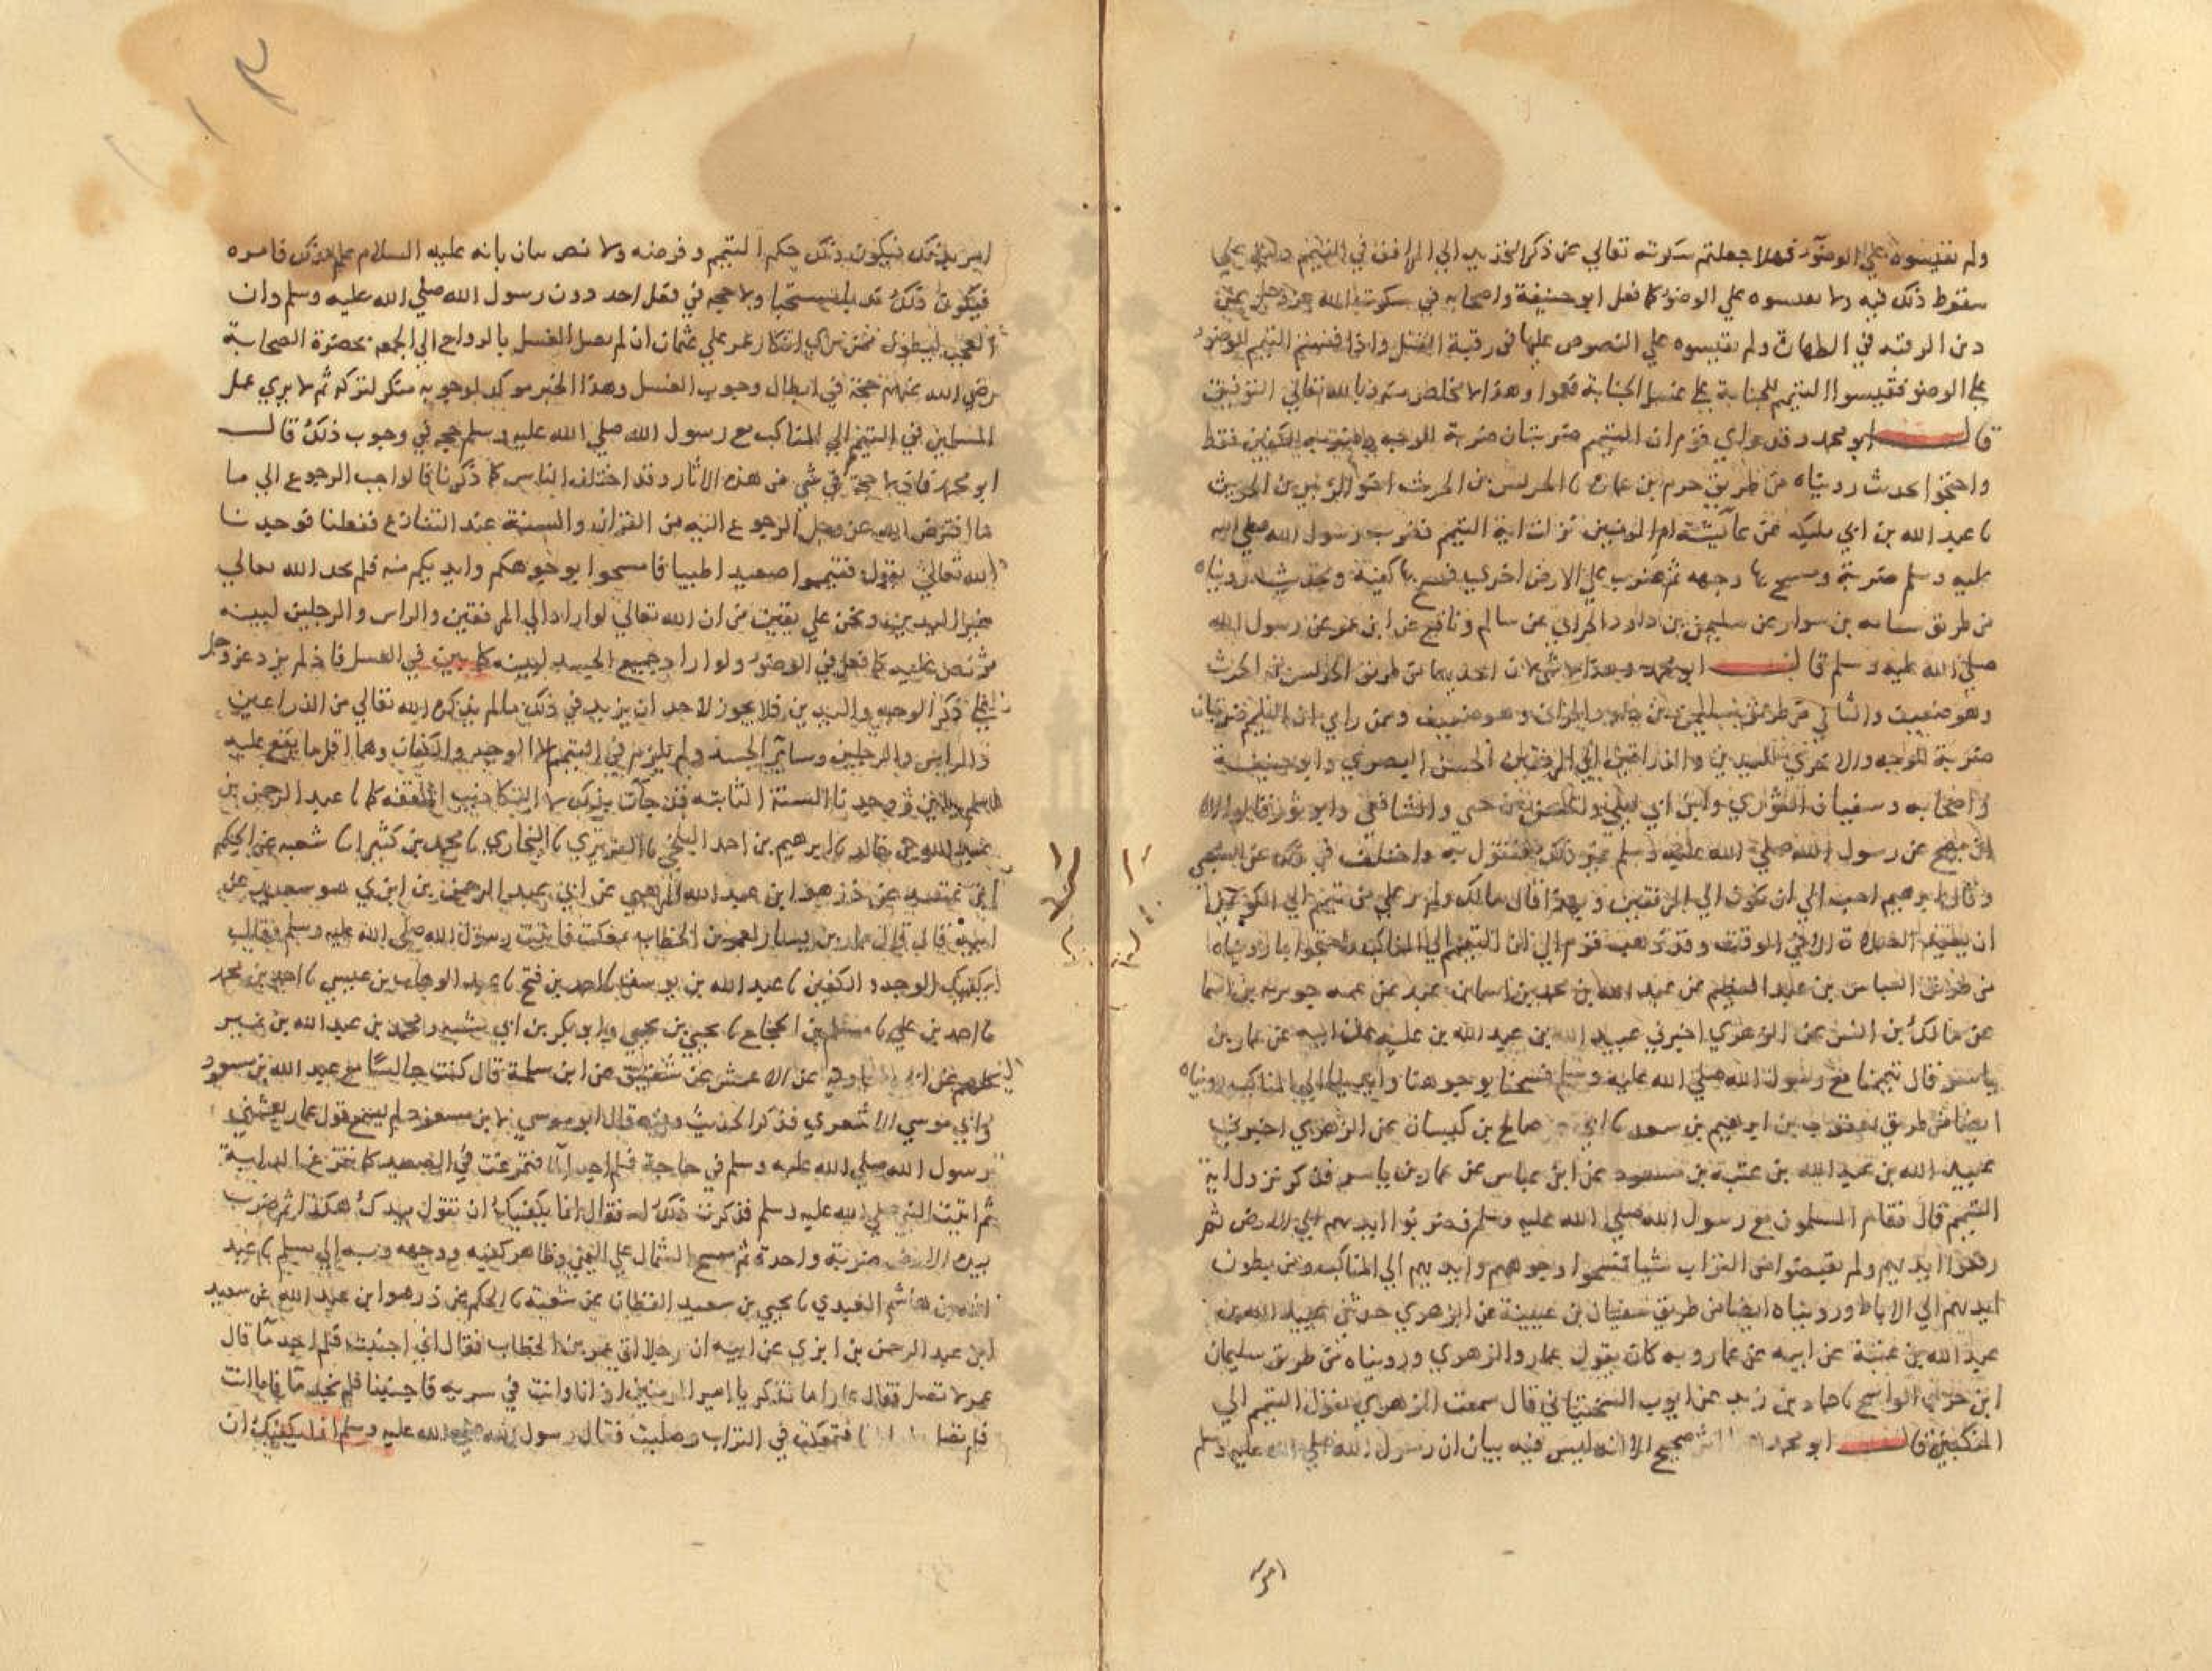 ولم تقيسوه علي الوضوء فهلا جعلتم سكوته تعالي عن ذكر التحديد الي المرافق في التيمم دليلا علي
سقوط ذلك فيه ولا تقيسوه علي الوضوء كما فعل ابو حنيفة واصحابه في سكوت الله عز وجل عن
دين الرقبة في الظهار ولم تقيسوه علي المنصوص عليها في رقبة القتل واذا قستم التيمم للوضوء
علي الوضو فقيسوا التيمم للجنابة علي غسل الجنابة فعموا وهذا لا مخلص منه وبالله تعالي التوفيق
قال ابو محمد وقد راي قوم ان التيمم ضربتان ضربة للوجه و الكفين فقط
واحتجوا بحديث رويناه من طريق حرمي بن عمارة ثنا الحريش بن الخريت اخو الزبير بن الخريت
ثنا عبد الله بن ابي مليكة عن عائشة ام المومنين نزلت اية التيمم فضرب رسول الله صلي الله
عليه وسلم ضربة ومسح بها وجهه ثم ضرب علي الارض اخري فمسح بها كفيه وبحديث رويناه
من طريق شبابة بن سوار عن سليمن بن داود الحراني عن سالم ونافع عن ابن عمر عن رسول الله
صلي الله عليه وسلم قال ابو محمد وهذا لا شي لان احديهما من طريق الحريش بن الخريت
وهو ضعيف والثاني من طريق سليمن بن داود الحراني وهو ضعيف وممن راي ان التيمم ضربتان
ضربة للوجه والاخري لليدين والذراعين الي المرفقين الحسن البصري وابو حنيفة
واصحابه وسفيان الثوري وابن ابي ليلي والحسن بن حي والشافعي وابو ثور قال الا
ان يصح عن رسول الله صلي الله عليه وسلم غير ذلك فنقول به واختلف في ذلك عن الشعبي
وقال ابرهيم احب الي ان يكون الي المرفقين وبهذا قال مالك ولم ير علي من تيمم الي الكوعين
ان يعيد الصلاة الا في الوقت وقد ذهب قوم الي ان التيمم الي المناكب واحتجوا بما رويناه
من طريق العباس بن عبد العظيم عن عبد الله بن محمد بن اسما بن عبيد عن عمه جويرية بن اسما
عن مالك بن انس عن الزهري اخبرني عبيد الله بن عبد الله بن عتبة عن ابيه عن عمار بن
ياسر قال تيممنا مع رسول الله صلي الله عليه وسلم فمسحنا بوجوهنا وايدينا الي المناكب ورويناه
ايضا من طريق يعقوب بن ابرهيم بن سعد ثنا ابي عن صالح بن كيسان عن الزهري اخبرني
عبيد الله بن عبد الله بن عتبة بن مسعود عن ابن عباس عن عمار بن ياسر فذكر نزول اية
التيمم قال فقام المسلمون مع رسول الله صلي الله عليه وسلم فضربوا ايديهم الي الارض ثم
رفعوا ايديهم ولم يقبضوا من التراب شيا فمسحوا وجوههم وايديهم الي المناكب ومن بطون
ايديهم الي الاباط ورويناه ايضا من طريق سفيان بن عيينة عن الزهري حدثني عبيد الله بن
عبد الله بن عتبة عن ابيه عن عمار وبه كان يقول عمار والزهري ورويناه من طريق سليمان
ابن حرب الواشحي ثنا حماد بن زيد عن ايوب السختياني قال سمعت الزهري يقول التيمم الي
المنكبين قال ابو محمد هذا اثر صحيح الا انه ليس فيه بيان ان رسول الله صلي الله عليه وسلم
امر بذلك فيكون ذلك حكم التيمم وفرضه ولا نص بيان بانه عليه السلام علم بذلك فاقره
فيكون ذلك ندبا مستحبا ولا حجة في فعل احد دون رسول الله صلي الله عليه وسلم وان
العجب ليطول ممن يري انكار عمر علي عثمان ان لم يصل الغسل بالرواح الي الجمعة بحضرة الصحابة
رضي الله عنهم حجة في ابطال وجوب الغسل وهذا الخبر موكد لوجوبه منكر لتركه ثم لا يري عمل
المسلمين في التيمم الي المناكب مع رسول الله صلي الله عليه وسلم حجة في وجوب ذلك قال
ابو محمد فاذ لا حجة في شي من هذه الاثار وقد اختلف الناس كما ذكرنا فالواجب الرجوع الي ما
ما افترض الله عز وجل الرجوع اليه من القران والسنة عند التنازع ففعلنا فوجدنا
الله تعالي يقول فتيمموا صعيدا طيبا فامسحوا بوجوهكم وايديكم منه فلم يحد الله تعالي
غير اليدين ونحن علي يقين من ان الله تعالي لو اراد الي المرفقين والراس والرجلين لبينه
ونص عليه كما فعل في الوضوء ولو اراد جميع الجسد لبينه كما بين في الغسل فاذ لم يزد عز وجل
علي ذكر الوجه واليدين فلا يجوز لاحد ان يزيد في ذلك ما لم يذكره الله تعالي من الذراعين
والراس والرجلين وسائر الجسد ولم يلزم في التيمم الا الوجه والكفان وهما اقل ما يقع عليه
اسم اليدين ووجدنا السنة الثابتة قد جات بذلك لا الاكاذيب الملفقة كما ثنا عبد الرحمن بن
عبد الله بن خالد ثنا ابرهيم بن احمد البلخي ثنا الفربري ثنا البخاري ثنا محمد بن كثير انا شعبة عن الحكم
ابن عتيبة عن ذر هو ابن عبد الله المرهبي عن ابن عبد الرحمن بن ابزي هو سعيد عن
ابيه قال قال عمار بن ياسر لعمر بن الخطاب تمعكت فاتيت رسول الله صلي الله عليه وسلم فقال
يكفيك الوجه والكفين ثنا عبد الله بن يوسف ثنا احمد بن فتح ثنا عبد الوهاب بن عيسي ثنا احمد بن محمد
ثنا احمد بن علي ثنا مسلم بن الحجاج ثنا يحيي بن يحيي وابو بكر بن ابي شيبة ومحمد بن عبد الله بن نمير
كلهم عن ابي معاوية عن الاعمش عن شقيق عن ابن سلمة قال كنت جالسا مع عبد الله بن مسعود
وابي موسي الاشعري فذكر الحديث وفيه قال ابو موسي لابن مسعود الم تسمع قول عمار بعثني
رسول الله صلي الله عليه وسلم في حاجة فلم اجد الما فتمرغت في الصعيد كما تمرغ الدابة
ثم اتيت النبي صلي الله عليه وسلم فذكرت ذلك له فقال انما يكفيك ان تقول بيدك هكذا ثم ضرب
بيده الارض ضربة واحدة ثم مسح الشمال علي اليمني وظاهر كفيه ووجهه وبه الي مسلم ثنا عبد
الله بن هاشم العبدي ثنا يحيي بن سعيد القطان عن شعبة ثنا الحكم عن ذر هو ابن عبد الله عن سعيد
ابن عبد الرحمن بن ابزي عن ابيه ان رجلا اتي عمر بن الخطاب فقال اني اجنبت فلم اجد ما قال
عمر لا تصل فقال عمار اما تذكر يا امير المومنين اذ انا وانت في سرية فاجنبنا فلم نجد ما فاما انت
فلم تصل واما انا فتمعكت في التراب وصليت فقال رسول الله صلي الله عليه وسلم انما يكفيك ان